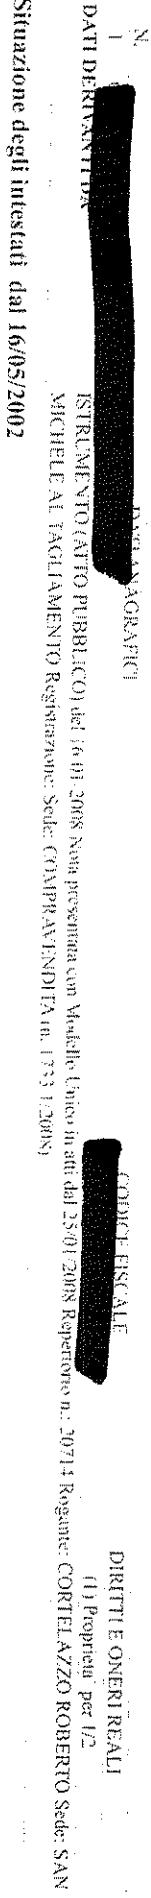 N. DATI ANAGRAFICI CODICE FISCALE DIRITTI E ONERI REALI
1 (1) Proprieta` per 1/2
DATI DERIVANTI DA ISTRUMENTO (ATTO PUBBLICO) del 16/01/2008 Nota presentata con Modello Unico in atti dal 25/01/2008 Repertorio n.: 20714 Rogante: CORTELAZZO ROBERTO Sede: SAN
MICHELE AL TAGLIAMENTO Registrazione: Sede: COMPRAVENDITA (n. 1733.1/2008)
Situazione degli intestati dal 16/05/2002